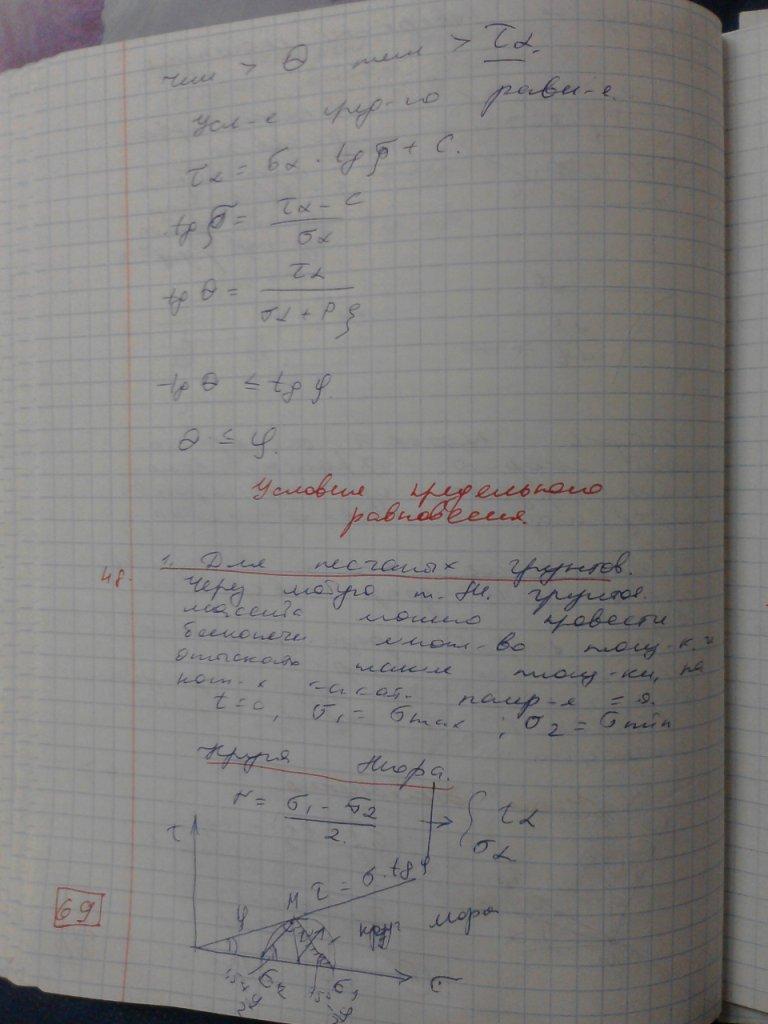 чем > θ тем > τα.
Усл-е пред-го равн-е
τα = σα · tgφ + c.
tgφ = (τα - c) / σα
tg θ = τα / (σα + Pε)
tg θ ≤ tg φ.
θ ≤ φ.
Условия предельного
равновесия.
48. 1. Для песчаных грунтов.
Через любую т. М. грунтов.
массива можно провести
бесконечн множ-во площ-к. и
отыскать такие площ-ки, на
кот-х касат. напр-я = 0.
t=0, σ1 = σmax ; σ2 = σmin
Круги Мора.
r = (σ1 - σ2) / 2. → { τα
σα
τ
M τ = σ·tgφ
φ
круг мора
69
σ2 σ1 σ